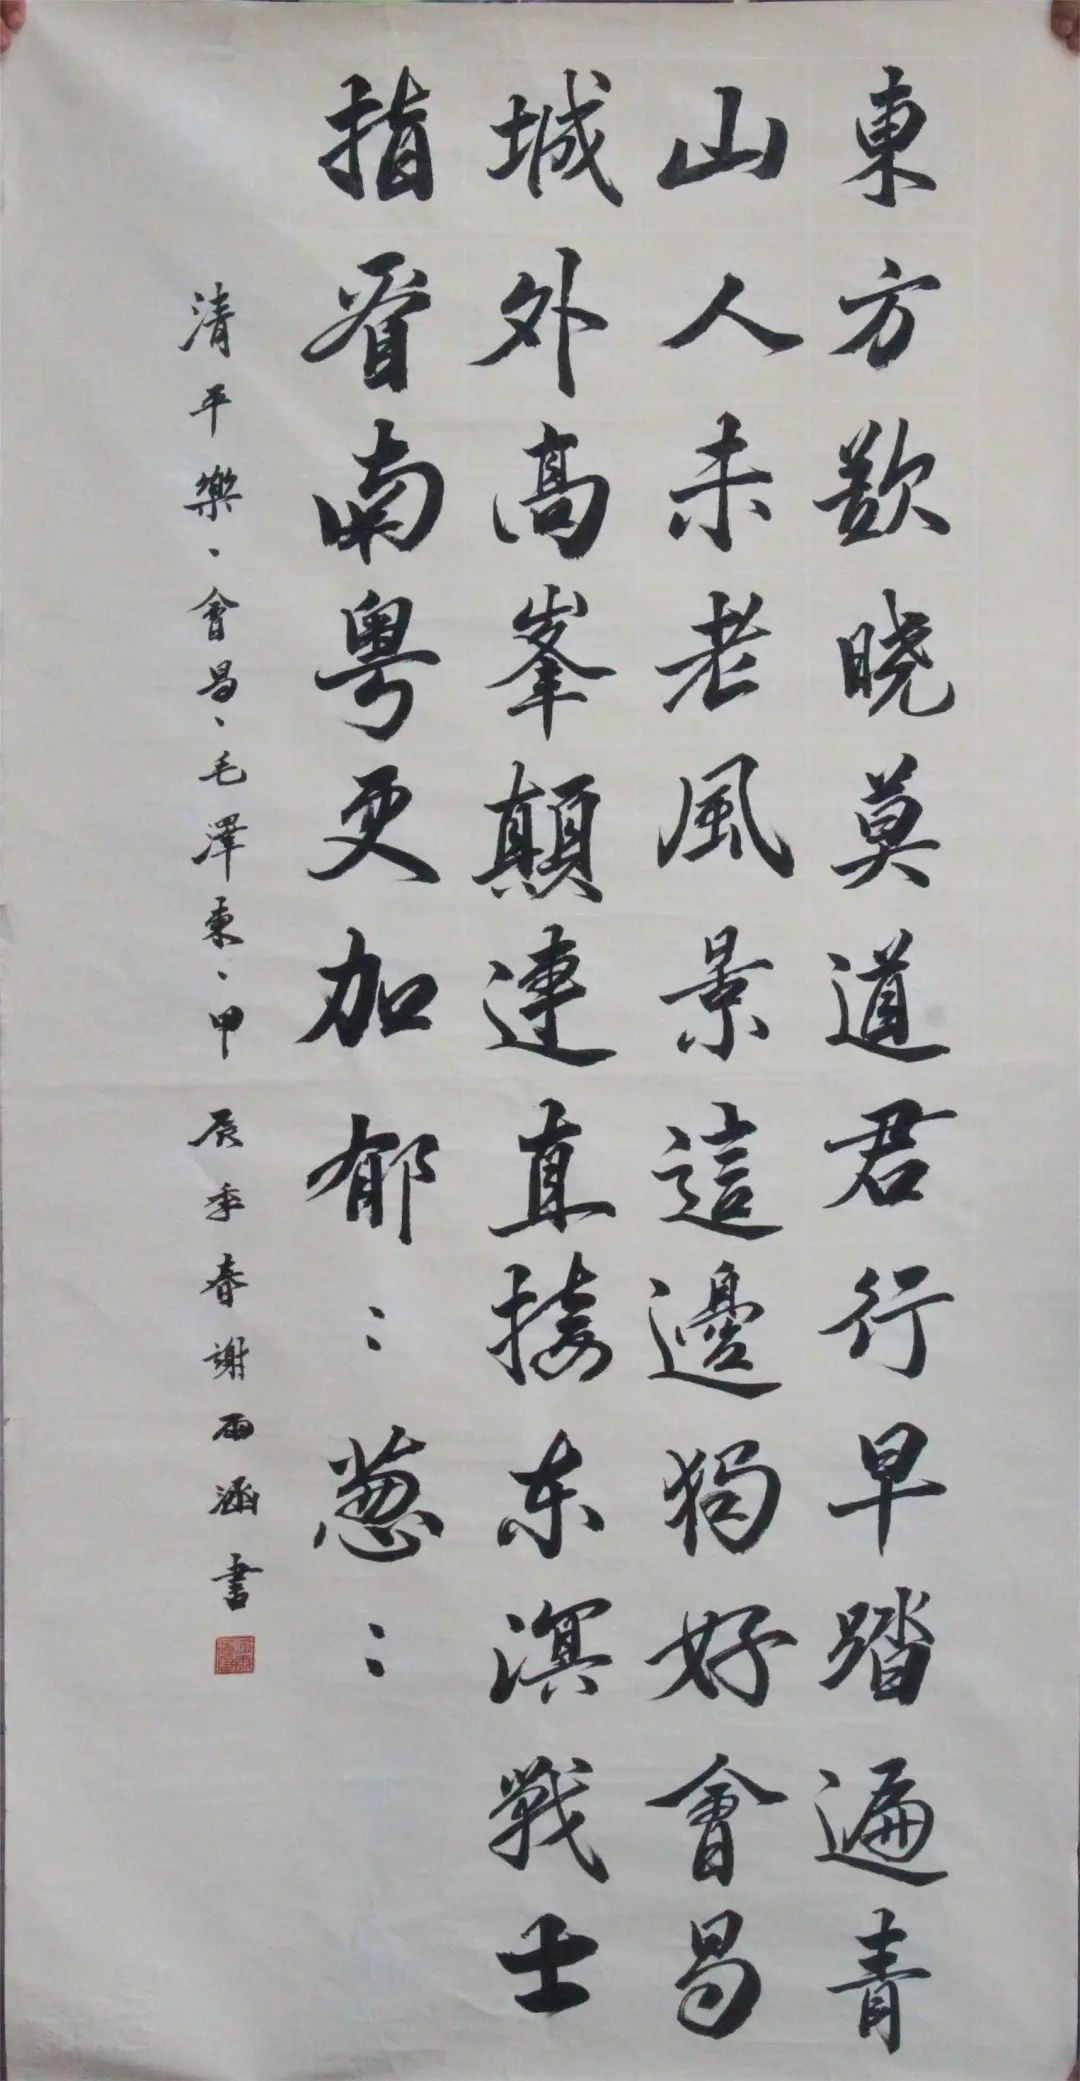 東方欲晓莫道君行早踏遍青
山人未老風景這邊獨好會昌
城外高峯顛連直接东溟戰士
指看南粤更加郁〻葱〻
清平樂、會昌、毛澤東、甲辰季春謝雨涵書